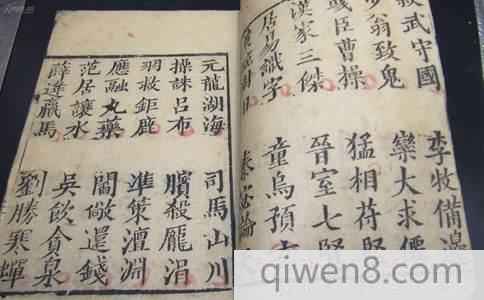 叔武守國 李牧備邊
少翁致鬼 欒大求
彧臣曹操 猛相苻堅
漢家三傑 晉室七賢
居易識字 童烏預
秦宓論
元龍湖海 司馬山川
操誅呂布 臏殺龐涓
羽救鉅鹿 準策澶淵
應融丸藥 閻敞還錢
范居讓水 吳飲貪泉
薛逢羸馬 劉勝寒蟬
qiwen8.com